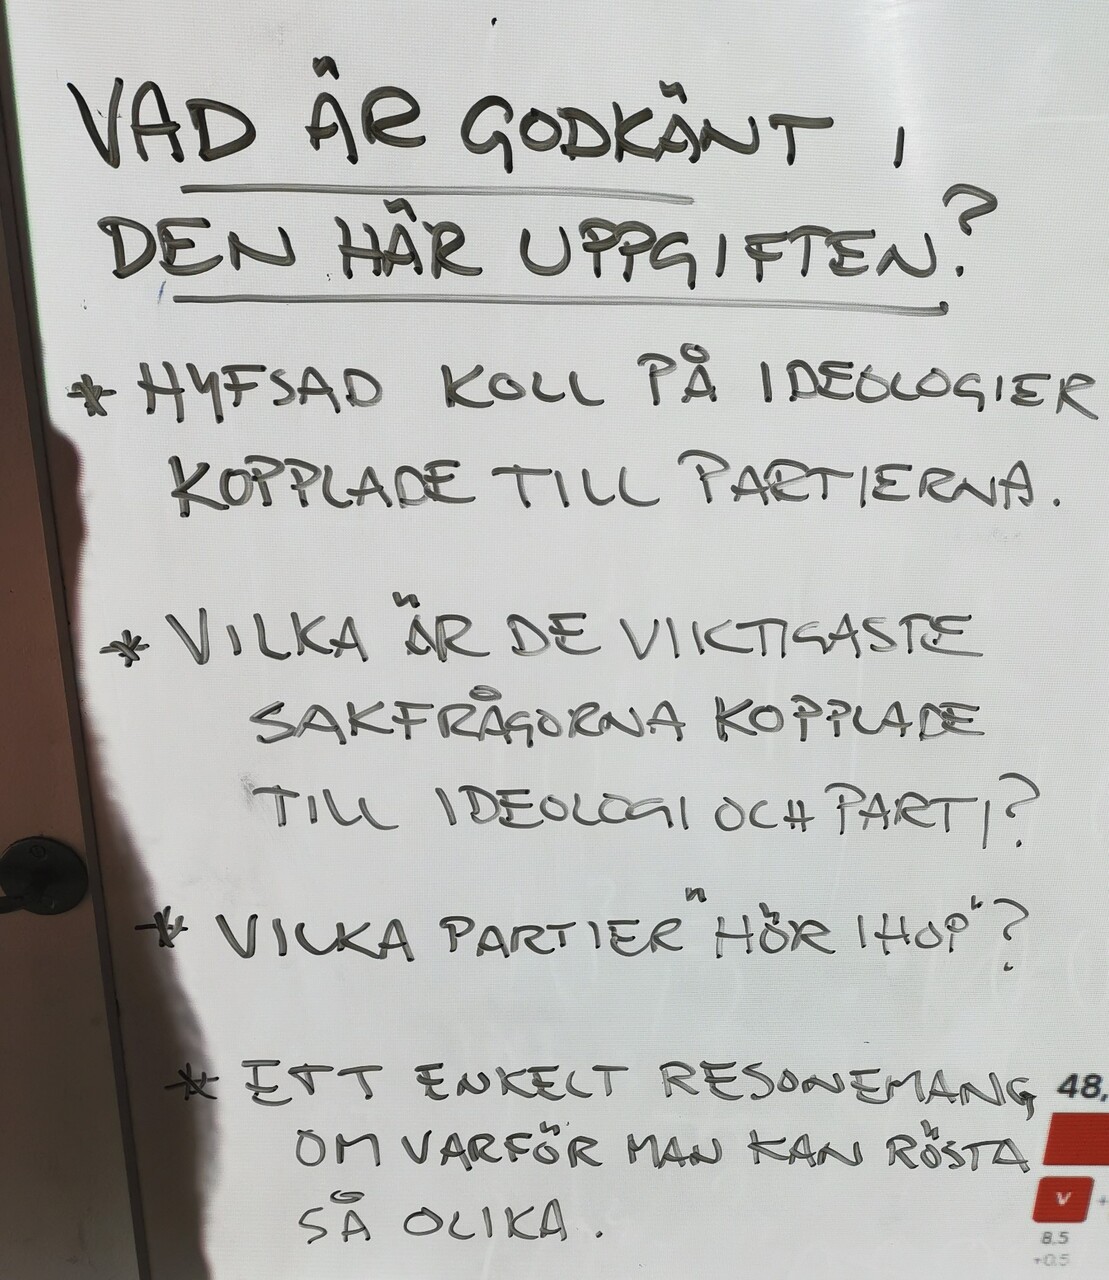 VAD ÄR GODKÄNT I
DEN HÄR UPPGIFTEN?
* HYFSAD KOLL PÅ IDEOLOGIER
KOPPLADE TILL PARTIERNA.
* VILKA ÄR DE VIKTIGASTE
SAKFRÅGORNA KOPPLADE
TILL IDEOLOGI OCH PARTI?
* VILKA PARTIER "HÖR IHOP"?
* ETT ENKELT RESONEMANG
OM VARFÖR MAN KAN RÖSTA
SÅ OLIKA.
48,
V
8.5
+0.5